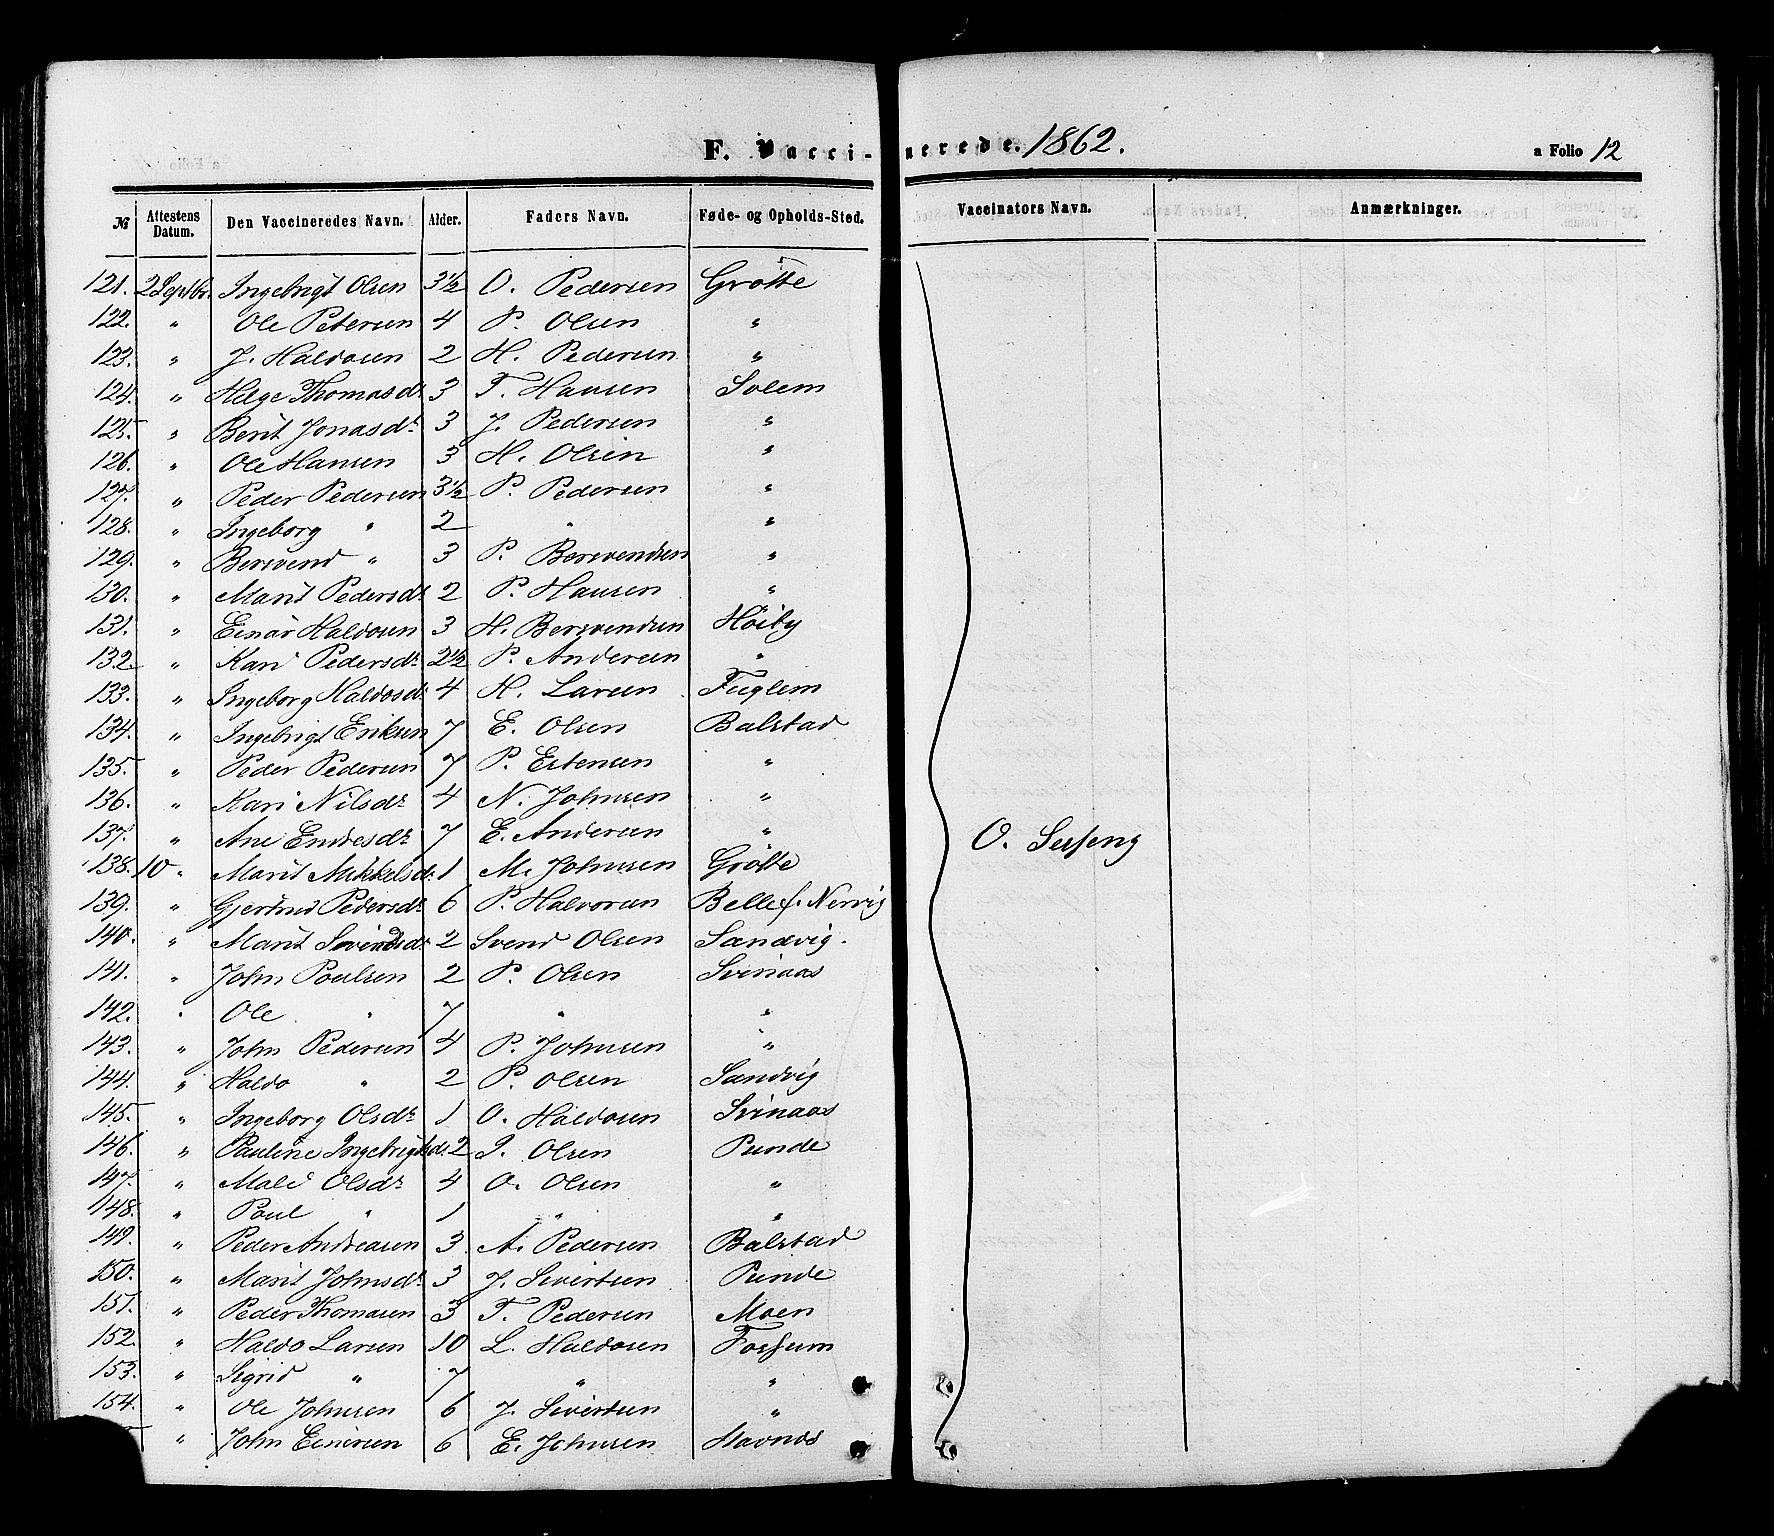 F. Vaccinerede. 1862. a Folio 12
№ Attestens Datum. Den Vaccineredes Navn. Alder. Faders Navn. Føde- og Opholds-Sted. Vaccinators Navn. Anmærkninger.
121. 2 Septbr. Ingebrigt Olsen 3½ O. Pedersen Grøtte
122. " Ole Petersen 4 P. Olsen "
123. " J. Haldosen 2 H. Pedersen "
124. " Helge Thomasdr 3 T. Hansen Solem
125. " Berit Jonasdr 3 J. Pedersen "
126. " Ole Hansen 3 H. Olsen "
127. " Peder Pedersen 3½ P. Pedersen "
128. " Ingeborg " 2 " "
129. " Bersvend " 3 P. Bersvendsen "
130. " Marit Pedersdr 2 P. Hansen "
131. " Einar Haldosen 3 H. Bersvendsen Høiby
132. " Kari Pedersdr 2½ P. Andersen "
133. " Ingeborg Haldosdr 4 H. Larsen Fuglem
134. " Ingebrigt Eriksen 7 E. Olsen Balstad
135. " Peder Pedersen 7 P. Estensen "
136. " Kari Nilsdr 4 N. Johnsen "
137. " Ane Endresdr 7 E. Andersen " O. Sesseng
138. 10 " Marit Mikkelsdr 1 M. Johnsen Grøtte
139. " Gjertrud Pedersdr 6 P. Halvorsen Belle f. Nervig
140. " Marit Svendsdr 2 Svend Olsen Sandvig.
141. " John Poulsen 2 P. Olsen Svinaas
142. " Ole " 7 " "
143. " John Pedersen 4 P. Johnsen "
144. " Haldo " 2 P. Olsen Sandvig
145. " Ingeborg Olsdr 1 O. Haldosen Svinaas
146. " Pauline Ingebrigtsdr 2 I. Olsen Punde
147. " Mali Olsdr 4 O. Olsen "
148. " Poul " 1 " "
149. " Peder Andreasen 3 A. Pedersen Balstad
150. " Marit Johnsdr 3 J. Sivertsen Punde
151. " Peder Thomasen 3 T. Pedersen Moen
152. " Haldo Larsen 10 L. Haldosen Fossum
153. " Sigrid " 7 " "
154. " Ole Johnsen 6 J. Sivertsen "
" John Einersen 6 E. Johnsen Stavnes